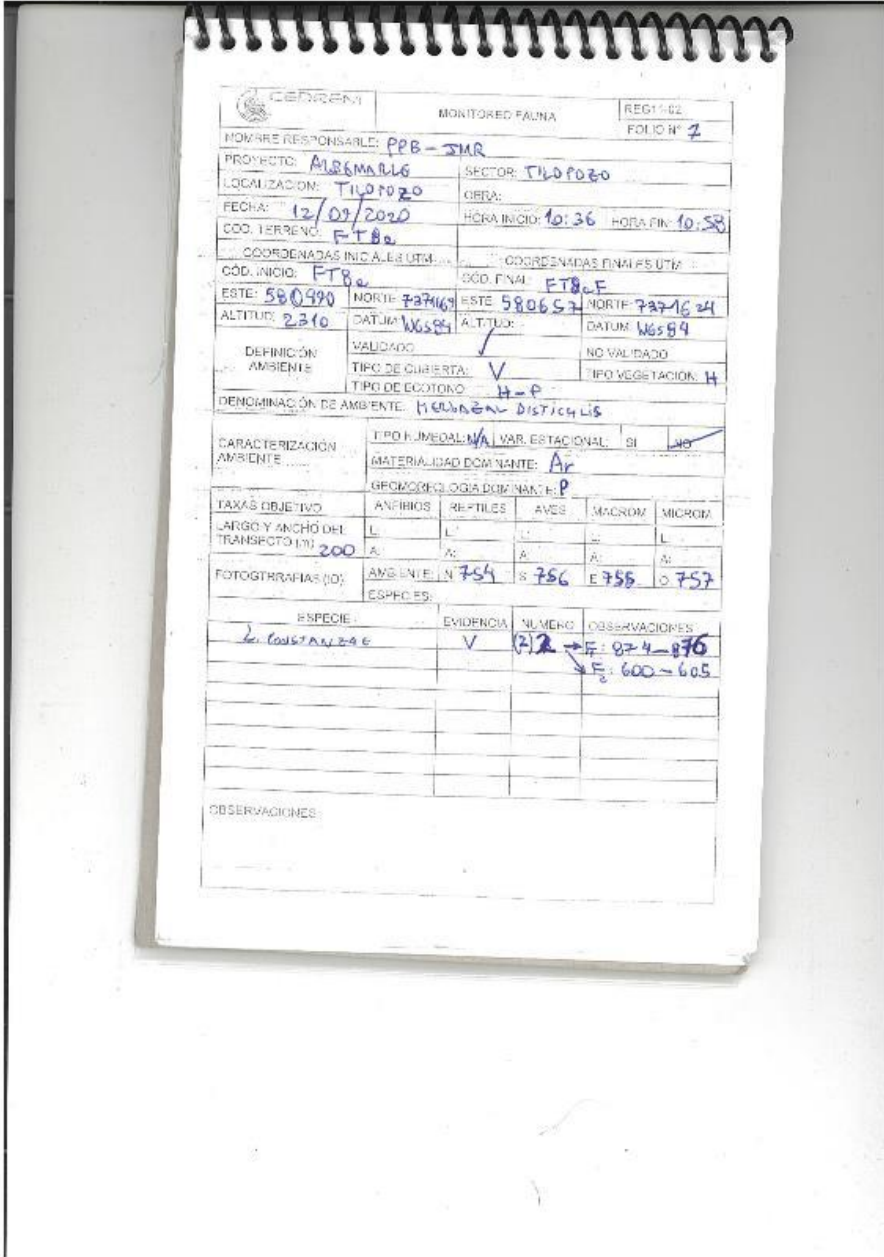 CEDREM MONITOREO FAUNA REG11-02
FOLIO N° 7
NOMBRE RESPONSABLE: PPB - JMR
PROYECTO: ALBEMARLE SECTOR: TILOPOZO
LOCALIZACION: TILOPOZO OBRA:
FECHA: 12/09/2020 HORA INICIO: 10:36 HORA FIN: 10:58
COD. TERRENO: FT8a
COORDENADAS INICIALES UTM COORDENADAS FINALES UTM
CÓD. INICIO: FT8a COD. FINAL: FT8aF
ESTE: 580490 NORTE: 7371469 ESTE: 580657 NORTE: 7371624
ALTITUD: 2310 DATUM: WGS84 ALTITUD: DATUM: WGS84
DEFINICIÓN AMBIENTE VALIDADO ✓ NO VALIDADO
TIPO DE CUBIERTA: V TIPO VEGETACION: H
TIPO DE ECOTONO: H-P
DENOMINACIÓN DE AMBIENTE: HERBAZAL DISTICHLIS
CARACTERIZACIÓN AMBIENTE TIPO HUMEDAL: N/A VAR. ESTACIONAL: SI NO ✓
MATERIALIDAD DOMINANTE: Ar
GEOMORFOLOGIA DOMINANTE: P
TAXAS OBJETIVO ANFIBIOS REPTILES AVES MACROM MICROM
LARGO Y ANCHO DEL TRANSECTO (m) 200 L: L: L: L: L:
A: A: A: A: A:
FOTOGTRRAFIAS (ID) AMBIENTE: N 754 S 756 E 755 O 757
ESPECIES:
ESPECIE EVIDENCIA NUMERO OBSERVACIONES
L. CONSTANZAE V (2) 2 → F: 874-876
F2: 600-605
OBSERVACIONES: